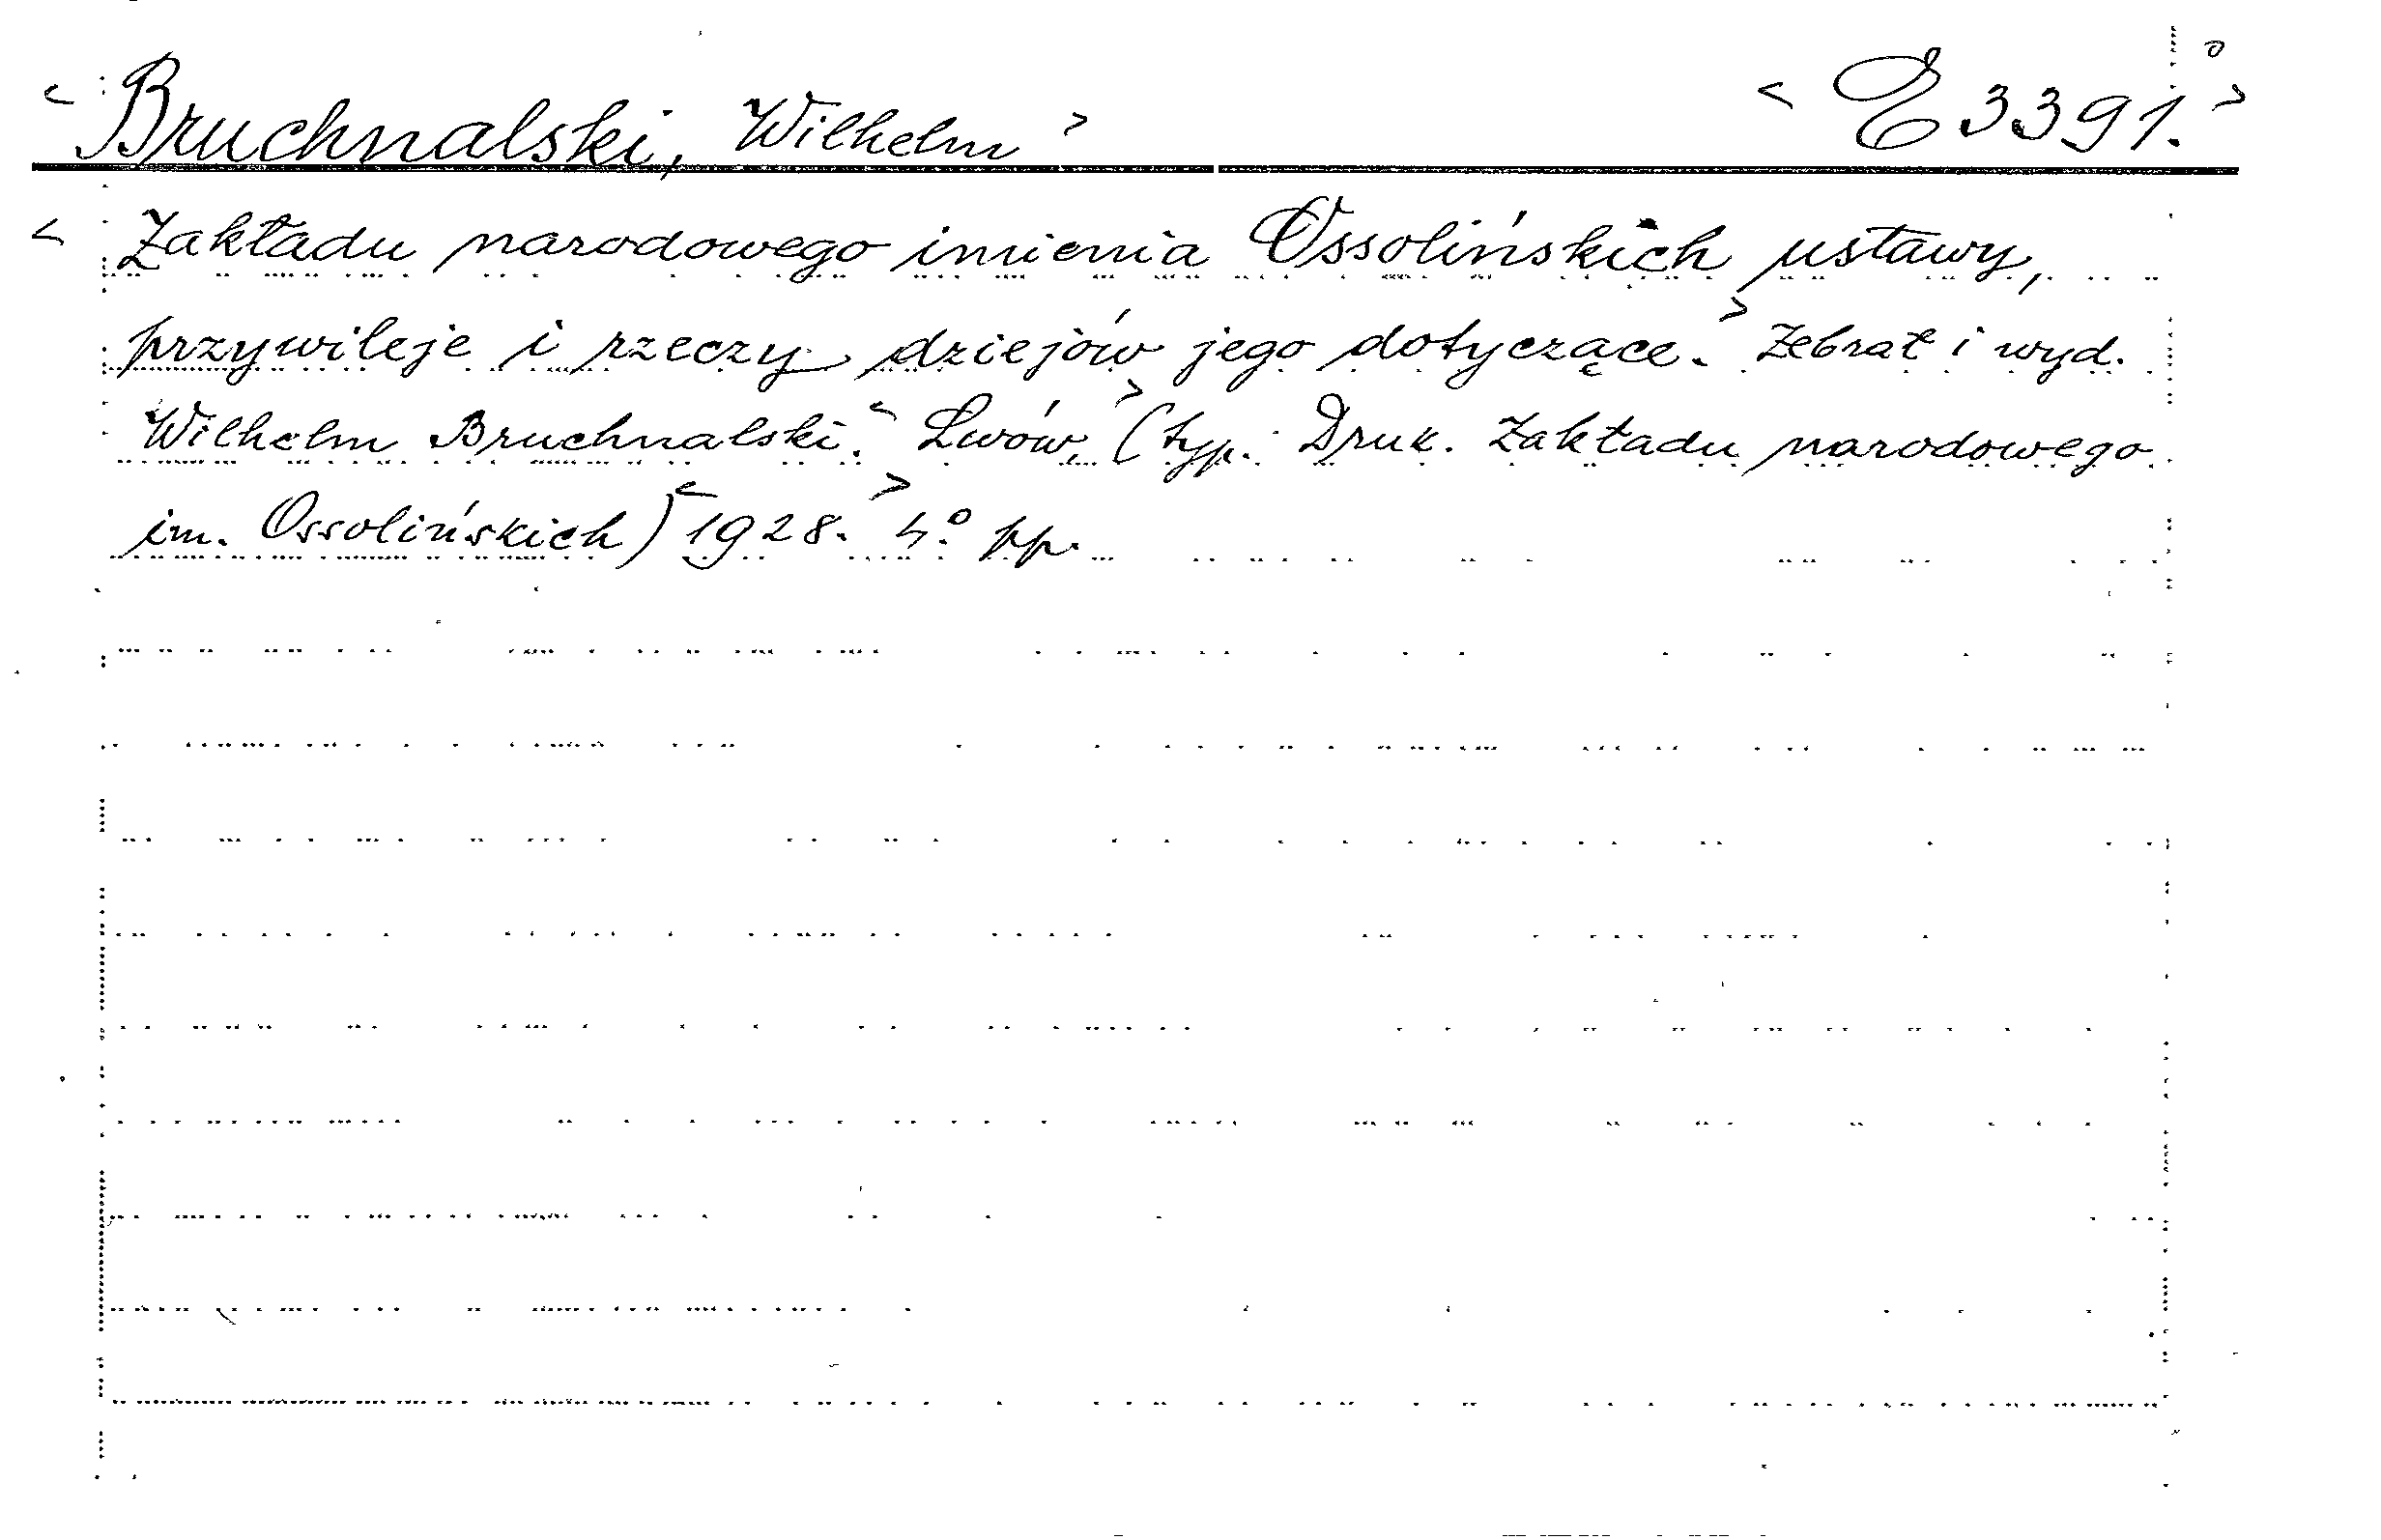 < Bruchnalski, Wilhelm > < E 3391. >
< Zakładu narodowego imienia Ossolińskich ustawy,
przywileje i rzeczy dziejów jego dotyczące. > Zebrał i wyd.
Wilhelm Bruchnalski. < Lwów, > (typ.: Druk. Zakładu narodowego
im. Ossolińskich) < 1928. > 4.° pp.